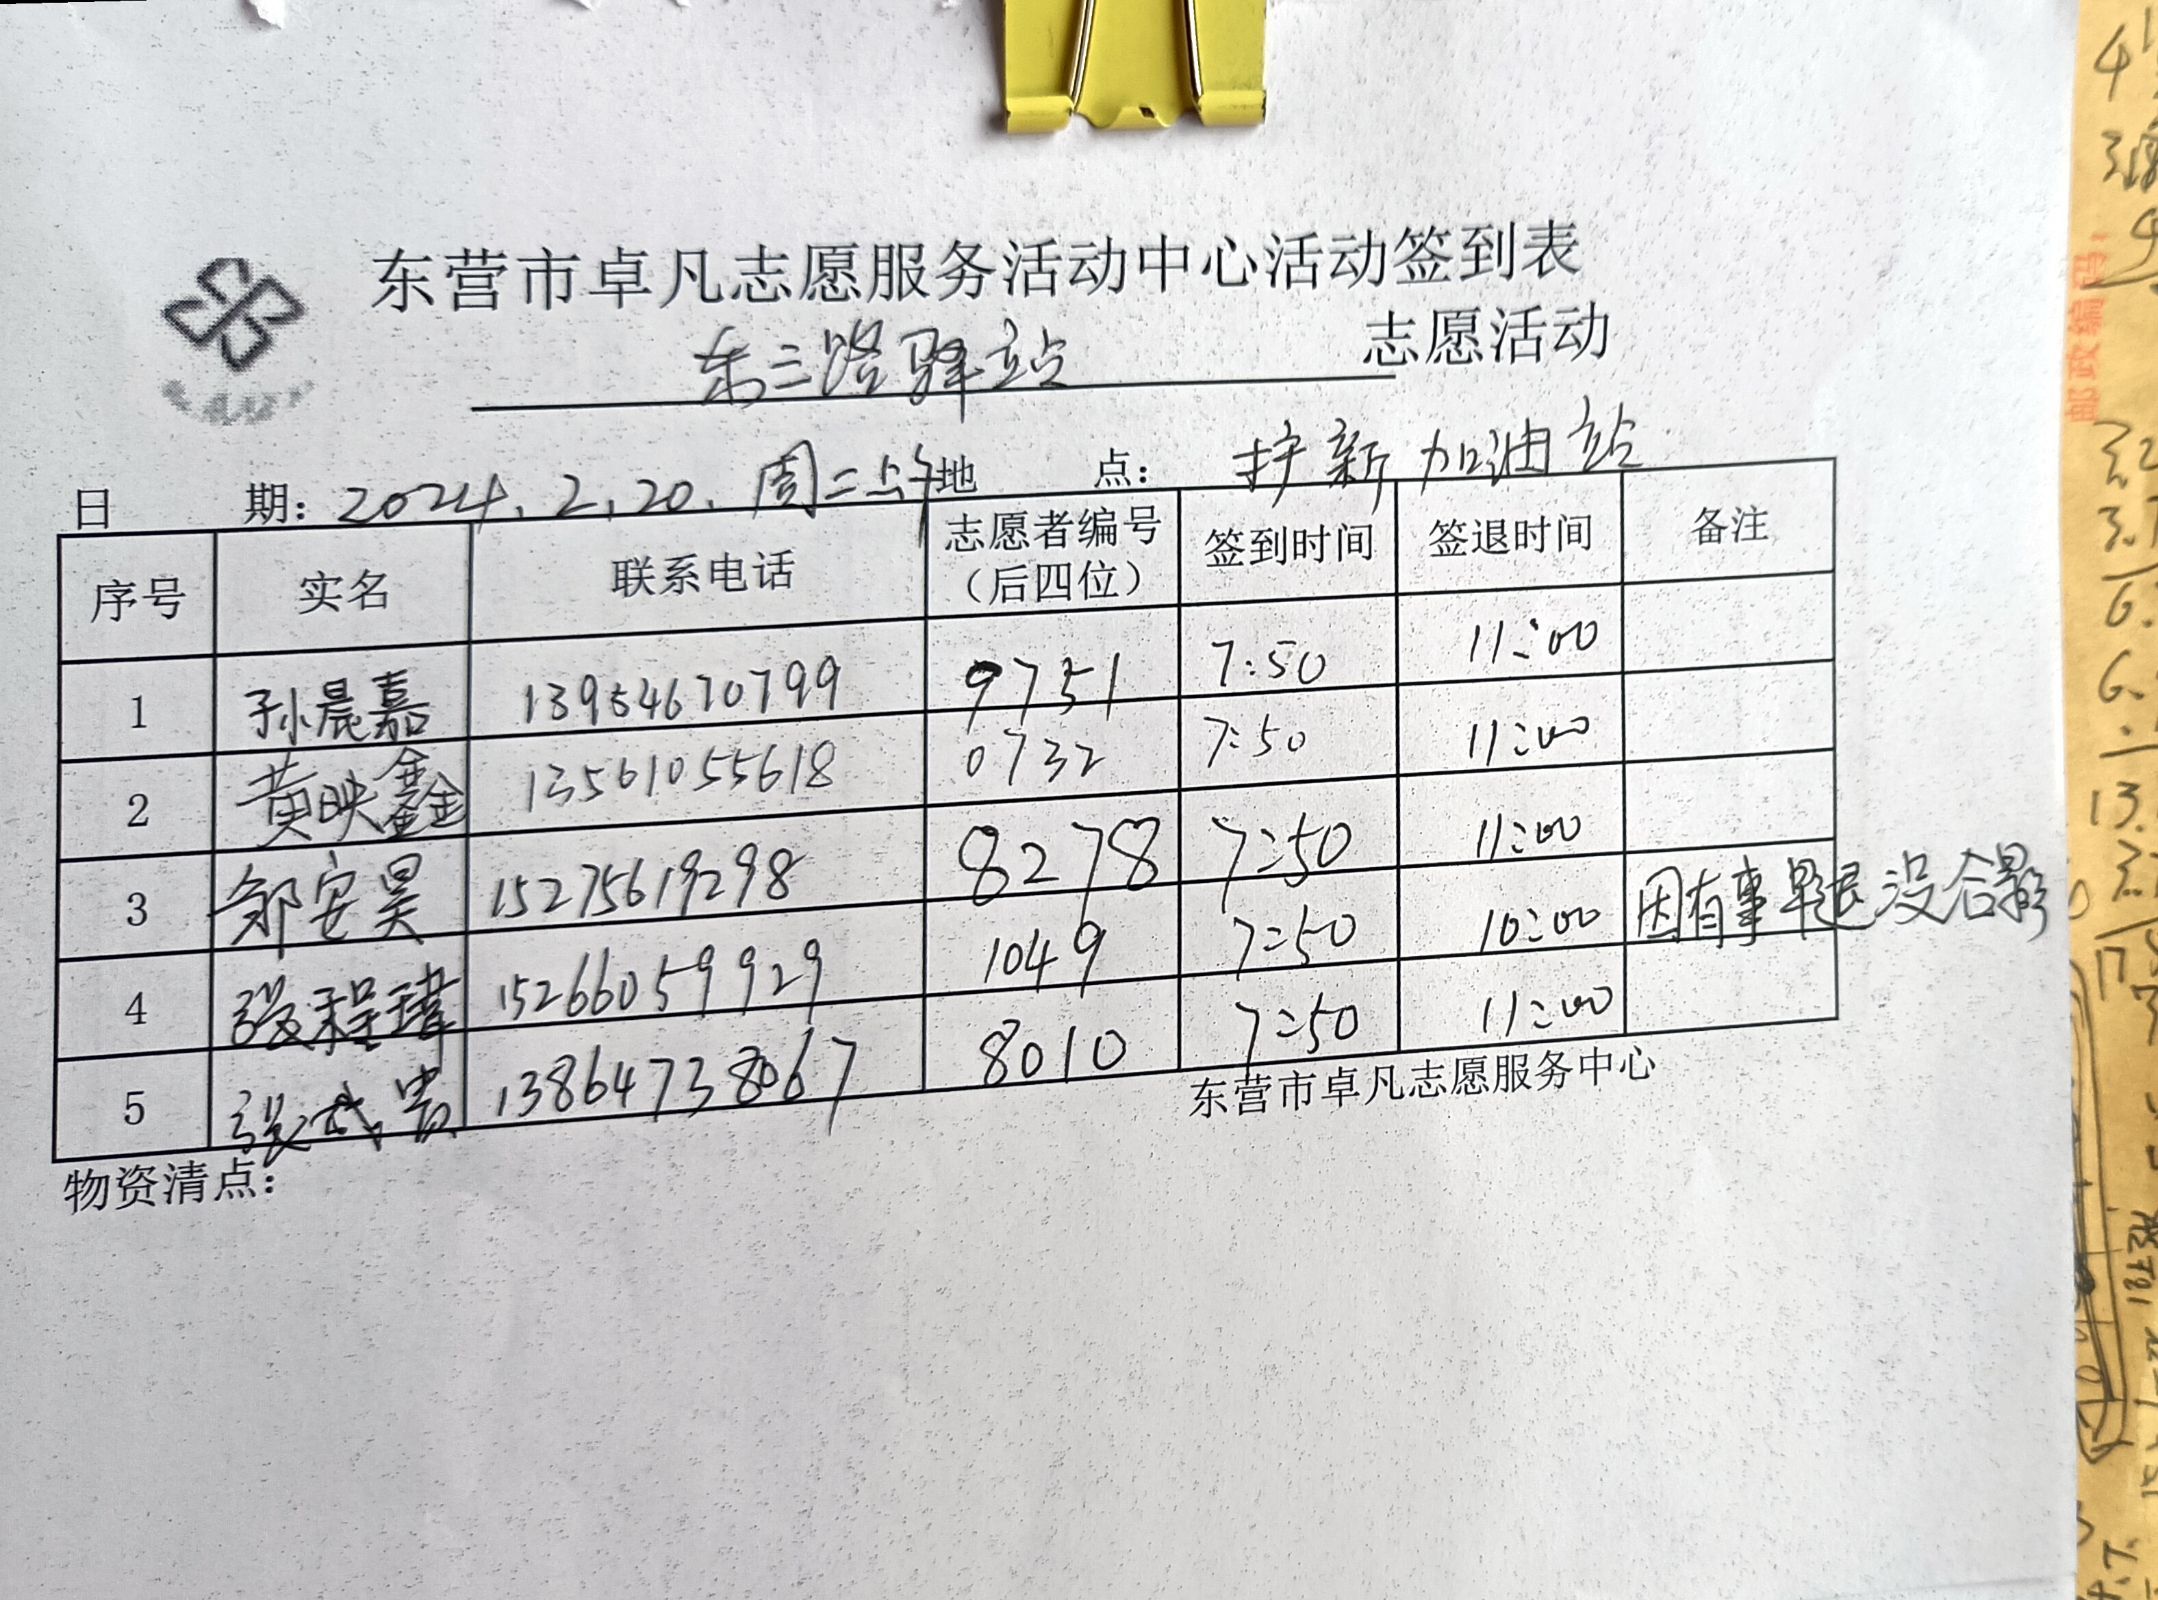 东营市卓凡志愿服务活动中心活动签到表
东三路驿站 志愿活动
日 期：2024.2.20.周二上午 地 点：护新加油站
序号 实名 联系电话 志愿者编号（后四位） 签到时间 签退时间 备注
1 孙晨嘉 13954670799 9751 7:50 11:00
2 黄映鑫 13561055618 0732 7:50 11:00
3 邹安昊 15275619298 8278 7:50 11:00
4 张程瑋 15266059929 1049 7:50 10:00 因有事早退没合影
5 张 13864738067 8010 7:50 11:00
东营市卓凡志愿服务中心
物资清点：
邮政编码：